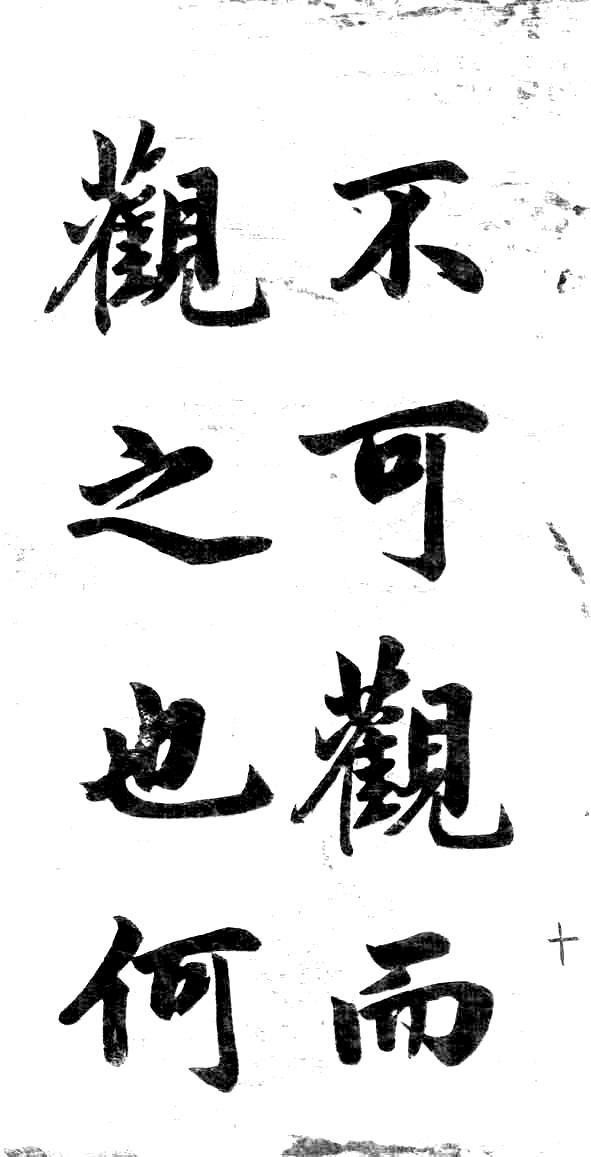 十
不可觀而
觀之也何